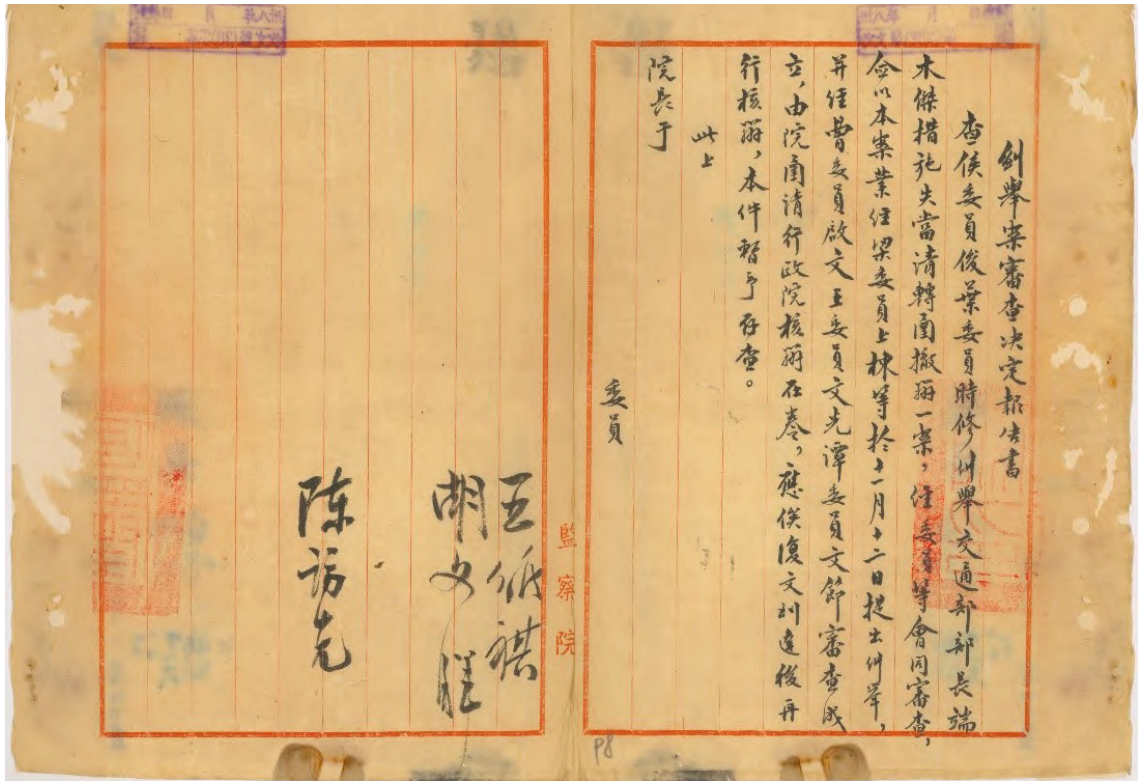 糾舉案審查決定報告書
查侯委員俊葉委員時修糾舉交通部部長端
木傑措施失當請轉函撤辦一案,經委員等會同審查,
僉以本案業經梁委員上棟等於十一月十二日提出糾舉,
并經曹委員啟文王委員文光譚委員文節審查成
立,由院函請行政院核辦在卷,應俟復文到達後再
行核辦,本件暫予存查。
此上
院長于
委員
監察院
胡文暉
陳訪先
P8